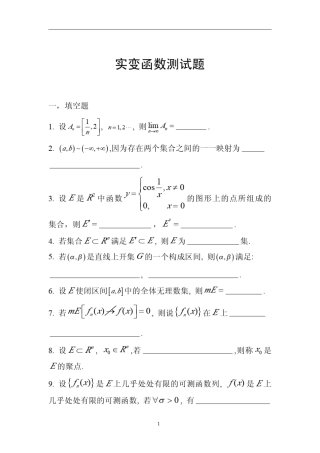 实变函数测试题
一，填空题
1. 设 Aₙ = [1/n, 2], n=1,2⋯, 则 lim Aₙ = ________ .
n→∞
2. (a,b) − (−∞,+∞),因为存在两个集合之间的一一映射为 ______
________________.
3. 设 E 是 R² 中函数 y = { cos 1/x, x≠0 的图形上的点所组成的
0, x=0
集合，则 E′ = ________, E° = ________ .
4. 若集合 E ⊂ Rⁿ 满足 E′ ⊂ E , 则 E 为 ________ 集.
5. 若 (α,β) 是直线上开集 G 的一个构成区间, 则 (α,β) 满足:
________________, ________________ .
6. 设 E 使闭区间 [a,b] 中的全体无理数集, 则 mE = ________ .
7. 若 mE[fₙ(x) ↛ f(x)] = 0 , 则说 {fₙ(x)} 在 E 上 ________
________ .
8. 设 E ⊂ Rⁿ, x₀ ∈ Rⁿ,若 ________________ ,则称 x₀ 是
E 的聚点.
9. 设 {fₙ(x)} 是 E 上几乎处处有限的可测函数列, f(x) 是 E 上
几乎处处有限的可测函数, 若 ∀σ > 0 , 有 ________________
1